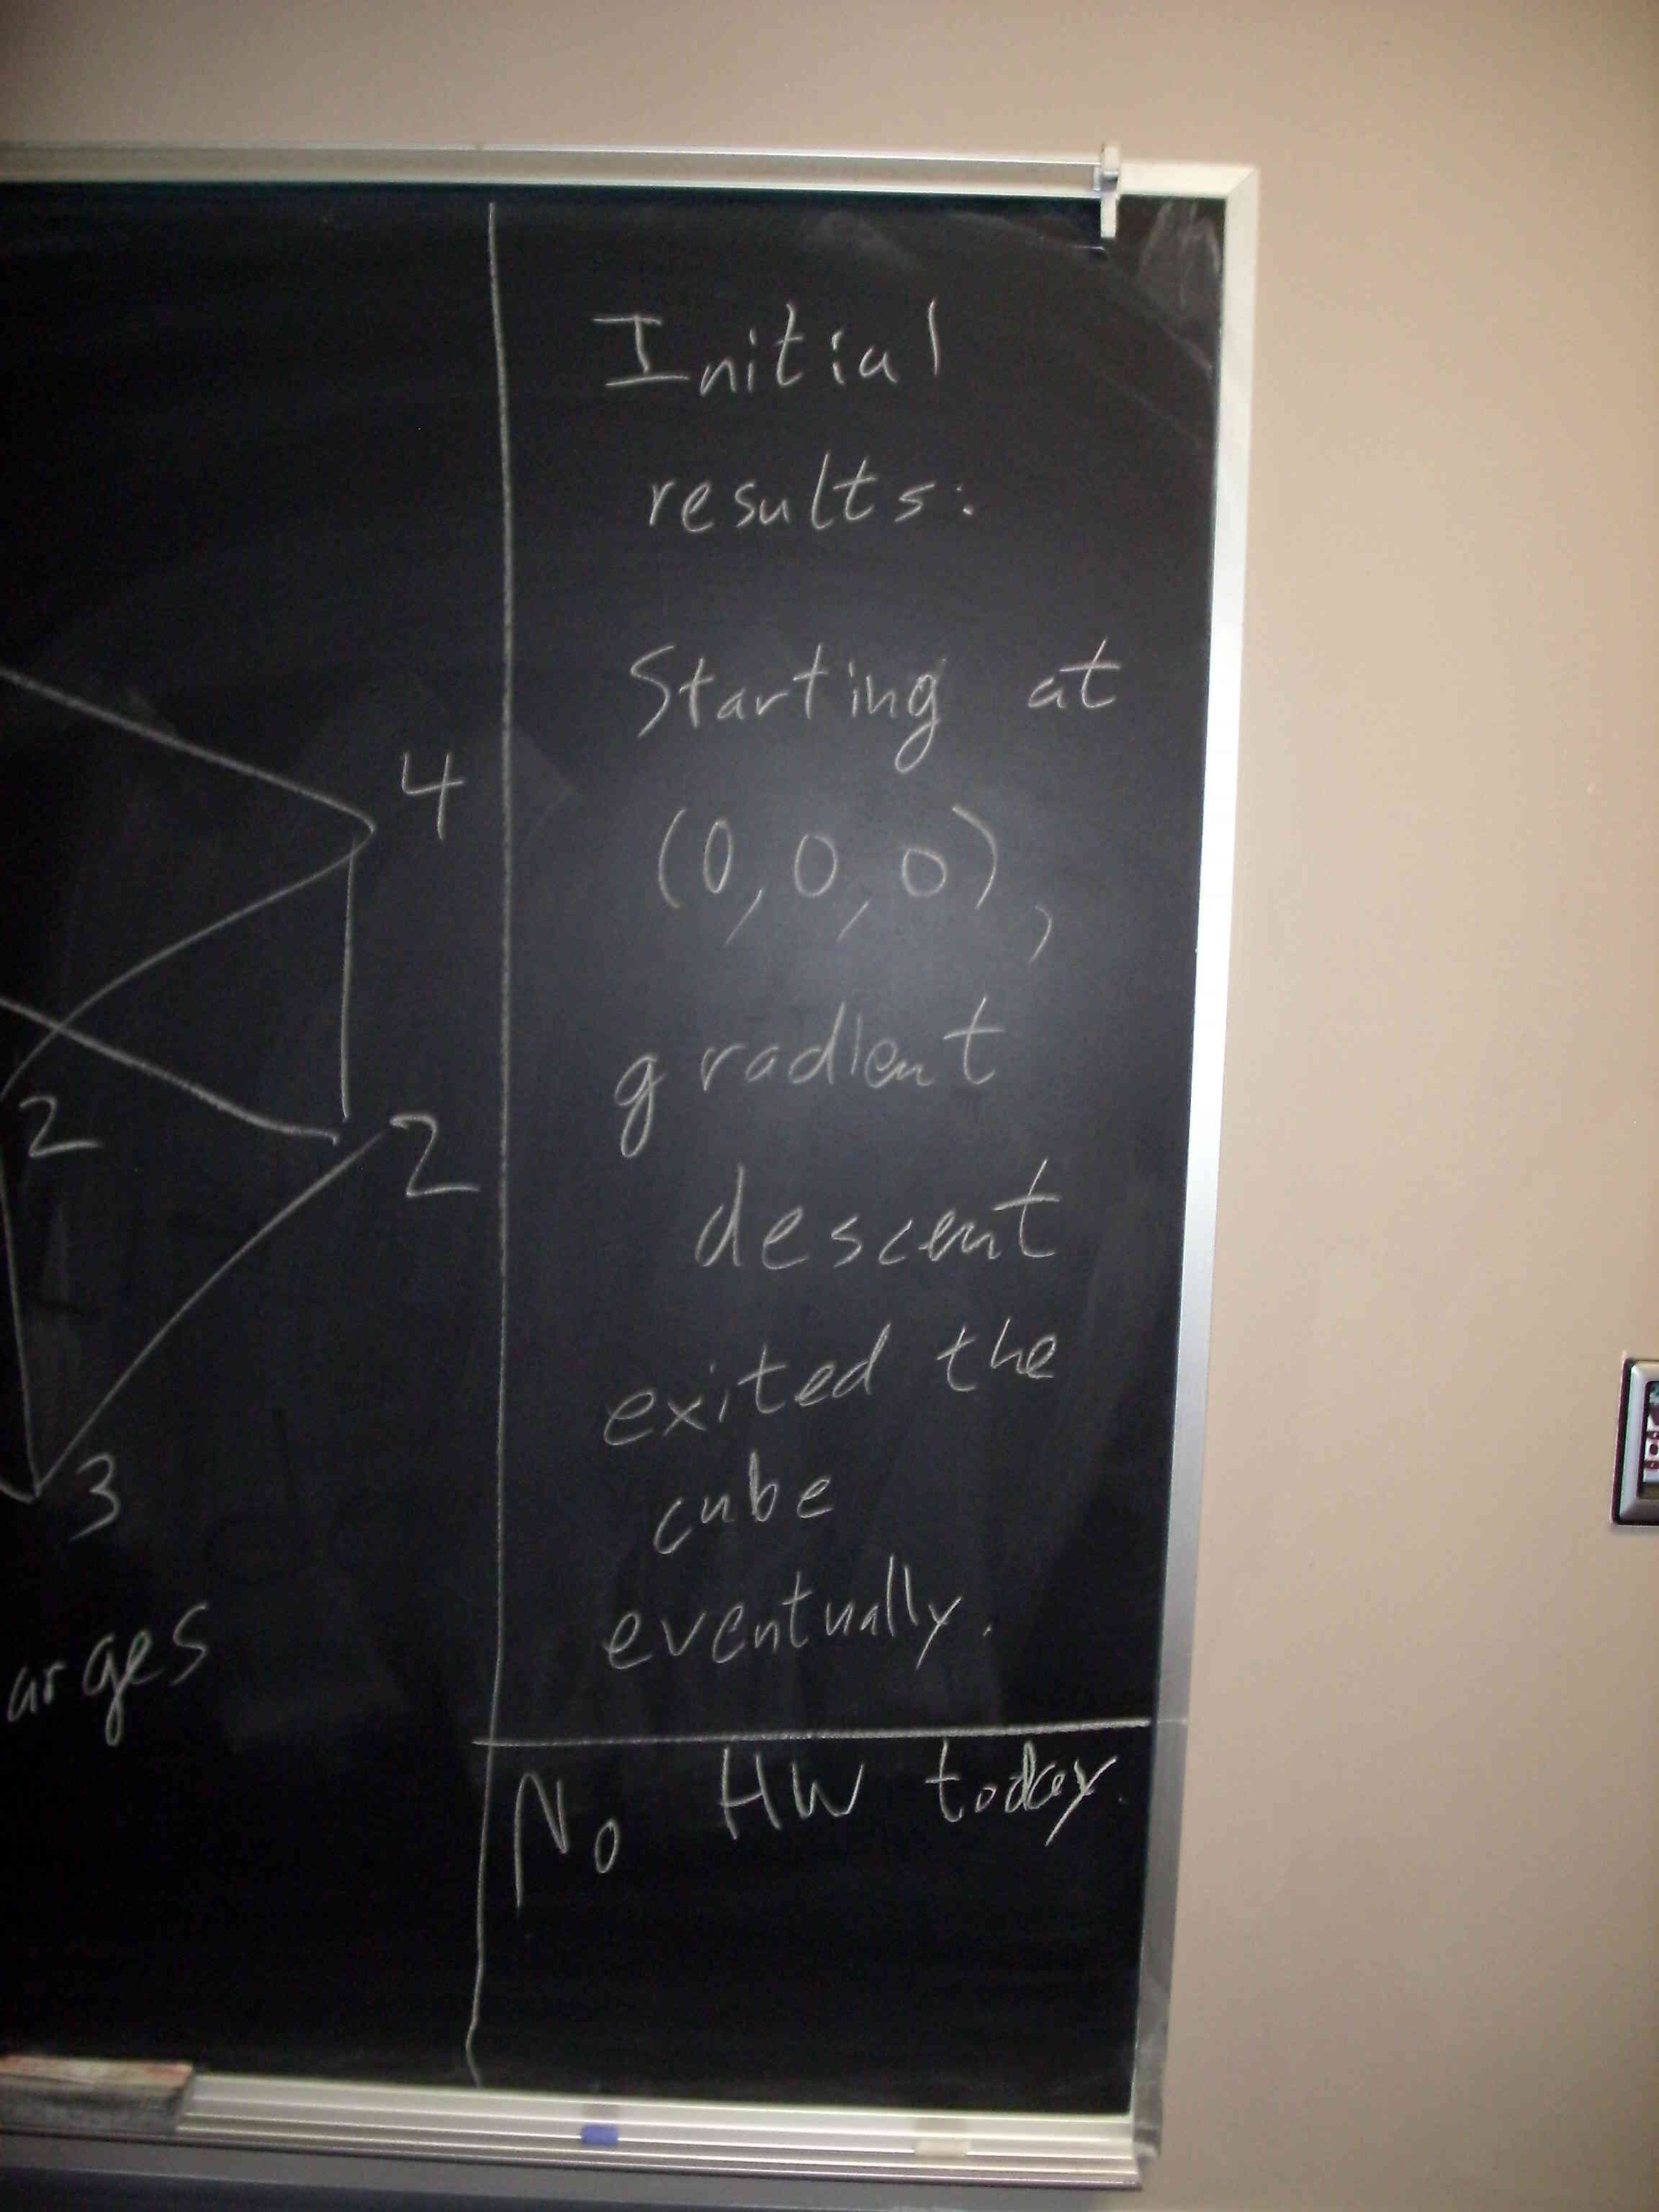 4
2
2
3
arges
Initial
results:
Starting at
(0,0,0),
gradient
descent
exited the
cube
eventually.
No HW today.